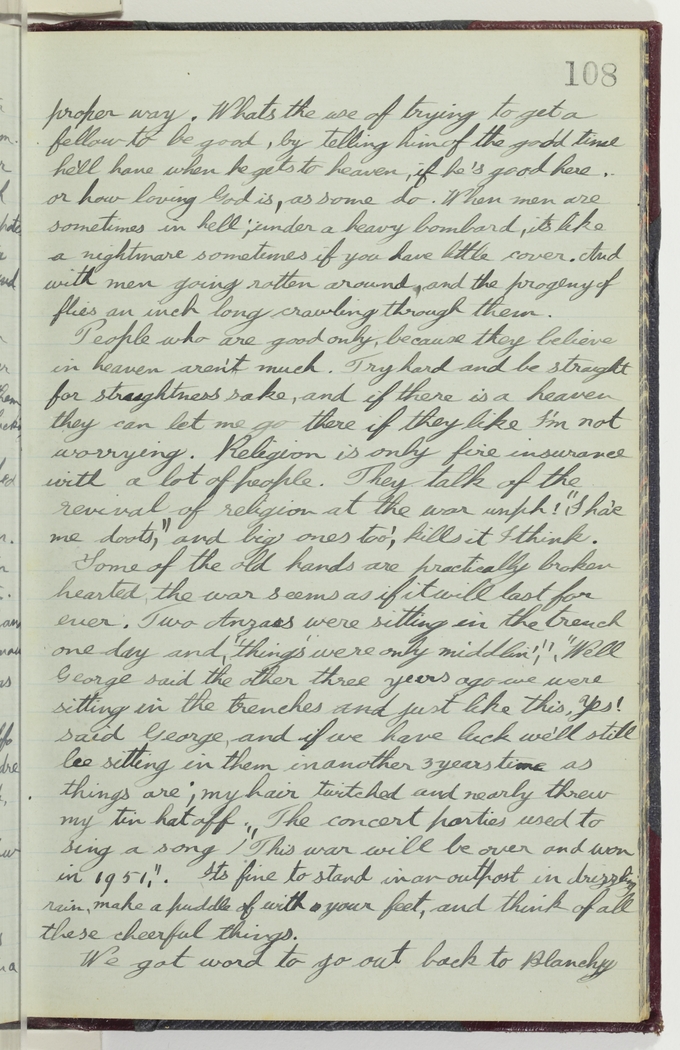 108
proper way. Whats the use of trying to get a
fellow to be good, by telling him of the godd time
he'll have when he gets to heaven, if he's good here.
or how loving God is, as some do. When men are
sometimes in hell; under a heavy bombard, its like
a nightmare sometimes if you have little cover. And
with men going rotten around, and the progeny of
flies an inch long crawling through them.
People who are good only, because they believe
in heaven aren't much. Try hard and be straight
for straightness sake, and if there is a heaven
they can let me go there if they like I'm not
worrying. Religion is only fire insurance
with a lot of people. They talk of the
revival of religion at the war umph! "I ha'e
me doots," and big ones too', kills it I think.
Some of the old hands are practically broken
hearted, the war seems as if it will last for
ever. Two Anzacs were sitting in the trench
one day and, "things were only middlin'", "Well
George said the other three years ago we were
sitting in the trenches and just like this, Yes!
said George, and if we have luck we'll still
be sitting in them in another 3 years time as
things are; my hair twitched and nearly threw
my tin hat off. The concert parties used to
sing a song "This war will be over and won
in 1951,". Its fine to stand in an outpost in drizzling
rain, make a puddle of with your feet, and think of all
these cheerful things.
We got word to go out back to Blanchy